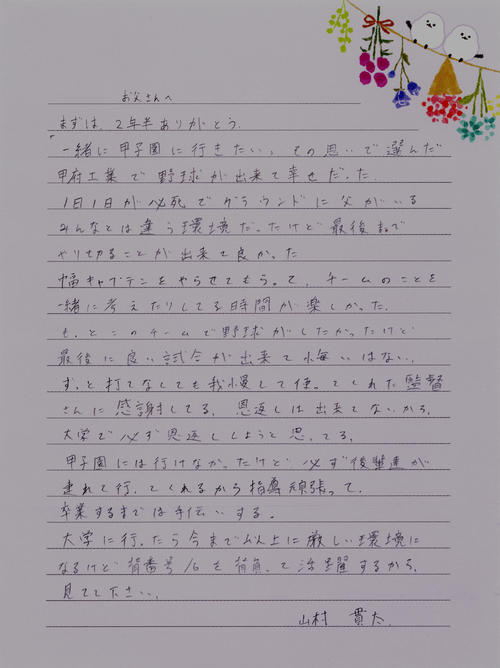 お父さんへ
まずは、2年半ありがとう。
「一緒に甲子園に行きたい」その思いで選んだ
甲府工業で野球が出来て幸せだった。
1日1日が必死でグラウンドに父がいる
みんなとは違う環境だったけど最後まで
やり切ることが出来て良かった
副キャプテンをやらせてもらって、チームのことを
一緒に考えたりしてる時間が楽しかった。
もっとこのチームで野球がしたかったけど
最後に良い試合が出来て悔いはない。
ずっと打てなくても我慢して使ってくれた監督
さんに感謝してる。恩返しは出来てないから
大学で必ず恩返ししようと思ってる。
甲子園には行けなかったけど必ず後輩達が
連れて行ってくれるから指導頑張って。
卒業するまでは手伝いする。
大学に行ったら今まで以上に厳しい環境に
なるけど背番号16を背負って活躍するから
見てて下さい。
山村 貫太